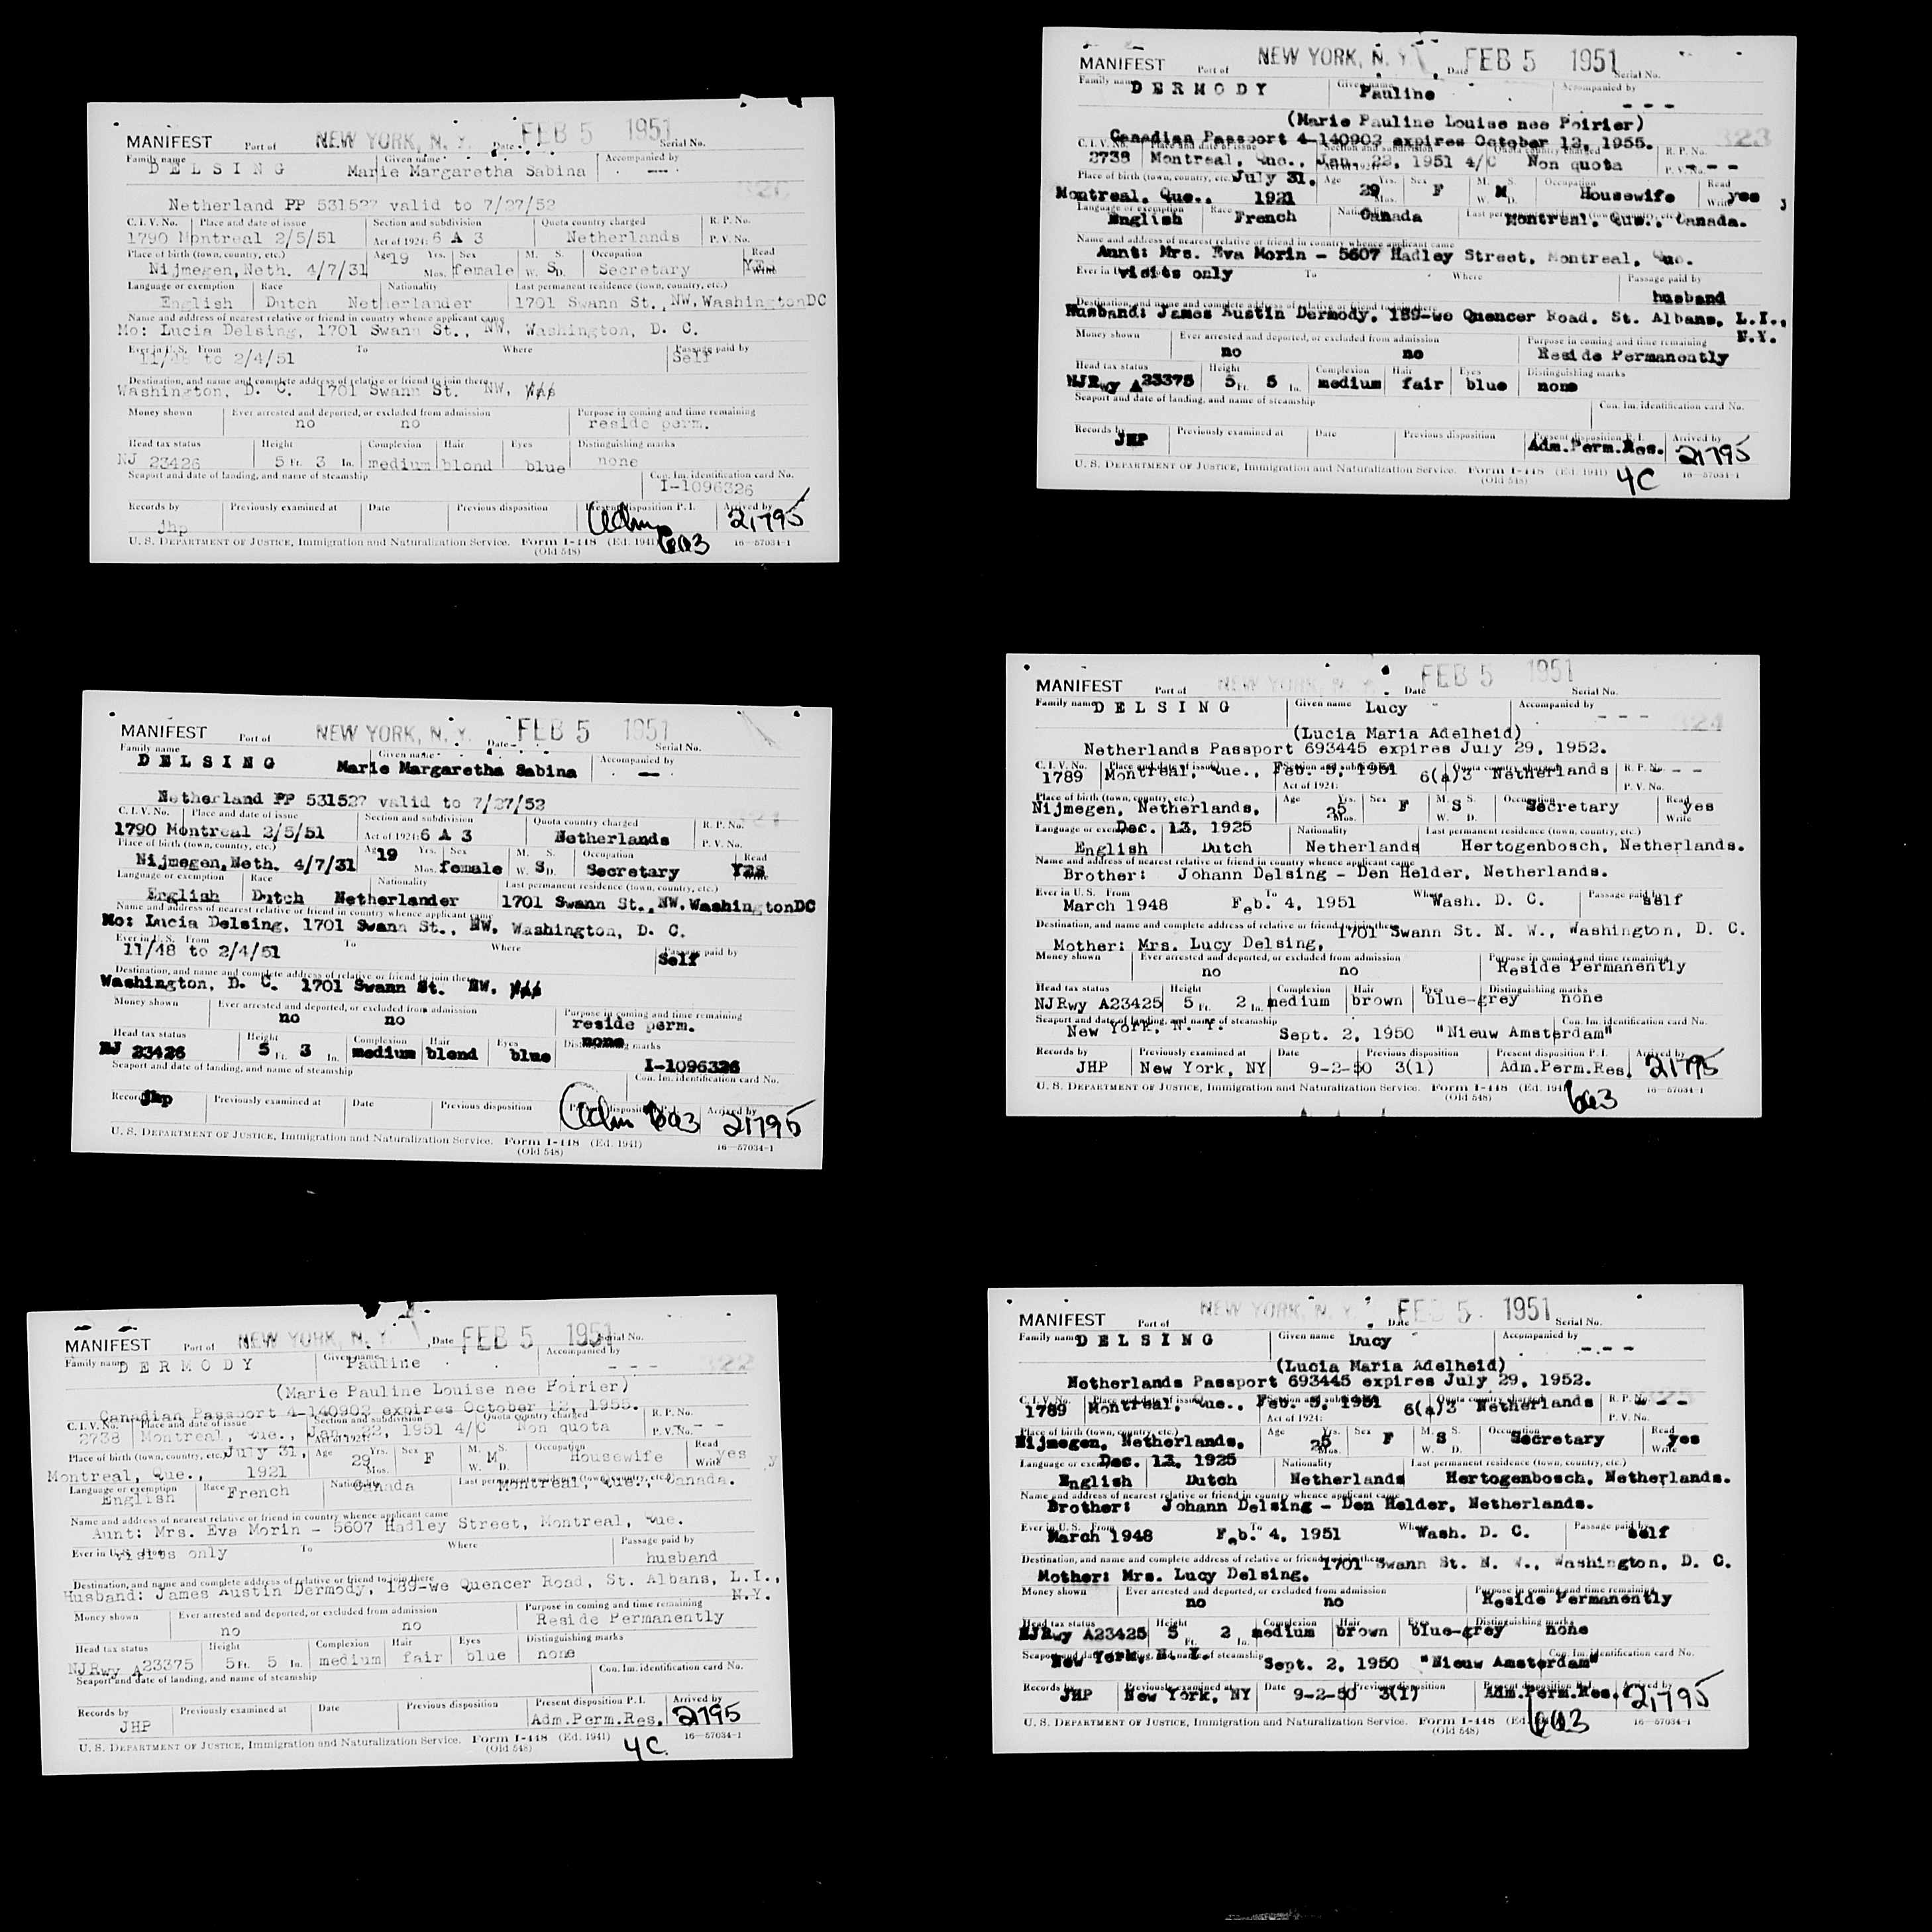 MANIFEST Port of NEW YORK, N. Y. Date FEB 5 1951 Serial No.
Family name DELSING Given name Marie Margaretha Sabina Accompanied by ---
320
Netherland PP 531527 valid to 7/27/52
C. I. V. No. Place and date of issue Section and subdivision Quota country charged R. P. No.
1790 Montreal 2/5/51 Act of 1924: 6 A 3 Netherlands P. V. No.
Place of birth (town, country, etc.) Age 19 Yrs. Sex M. S. Occupation Read
Nijmegen, Neth. 4/7/31 Mos. female W. S D. Secretary YES Write
Language or exemption Race Nationality Last permanent residence (town, country, etc.)
English Dutch Netherlander 1701 Swann St., NW, Washington DC
Name and address of nearest relative or friend in country whence applicant came
Mo: Lucia Delsing, 1701 Swann St., NW, Washington, D. C.
Ever in U. S. From To Where Passage paid by
11/48 to 2/4/51 Self
Destination, and name and complete address of relative or friend to join there
Washington, D. C. 1701 Swann St. NW,
Money shown Ever arrested and deported, or excluded from admission Purpose in coming and time remaining
no no reside perm.
Head tax status Height Complexion Hair Eyes Distinguishing marks
NJ 23426 5 Ft. 3 In. medium blond blue none
Seaport and date of landing, and name of steamship Con. Im. identification card No.
I-1096326
Records by Previously examined at Date Previous disposition Present disposition P. I. Arrived by
jhp Adm 21795
U. S. DEPARTMENT OF JUSTICE, Immigration and Naturalization Service. Form I-448 (Ed. 1941) 6a3 16—57034-1
(Old 548)
MANIFEST Port of NEW YORK, N. Y. Date FEB 5 1951 Serial No.
Family name DERMODY Given name Pauline Accompanied by ---
(Marie Pauline Louise nee Poirier)
323
Canadian Passport 4-140902 expires October 12, 1955.
C. I. V. No. Place and date of issue Section and subdivision Quota country charged R. P. No.
2738 Montreal, Que., Jan. 22, 1951 4/C Non quota P. V. No. ---
Place of birth (town, country, etc.) July 31, Age Yrs. Sex M. S. Occupation Read
Montreal, Que., 1921 29 Mos. F W. M D. Housewife Write yes y
Language or exemption Race Nationality Last permanent residence (town, country, etc.)
English French Canada Montreal, Que., Canada.
Name and address of nearest relative or friend in country whence applicant came
Aunt: Mrs. Eva Morin - 5607 Hadley Street, Montreal, Que.
Ever in U. S. visits only To Where Passage paid by
husband
Destination, and name and complete address of relative or friend to join there
Husband: James Austin Dermody, 189-we Quencer Road, St. Albans, L.I.,
N.Y.
Money shown Ever arrested and deported, or excluded from admission Purpose in coming and time remaining
no no Reside Permanently
Head tax status Height Complexion Hair Eyes Distinguishing marks
NJRwy A23375 5 Ft. 5 In. medium fair blue none
Seaport and date of landing, and name of steamship Con. Im. identification card No.
Records by Previously examined at Date Previous disposition Present disposition P. I. Arrived by
JHP Adm.Perm.Res. 21795
U. S. DEPARTMENT OF JUSTICE, Immigration and Naturalization Service. Form I-448 (Ed. 1941) 4C 16—57034-1
(Old 548)
MANIFEST Port of NEW YORK, N. Y. Date FEB 5 1951 Serial No.
Family name DELSING Given name Marie Margaretha Sabina Accompanied by ---
321
Netherland PP 531527 valid to 7/27/52
C. I. V. No. Place and date of issue Section and subdivision Quota country charged R. P. No.
1790 Montreal 2/5/51 Act of 1924: 6 A 3 Netherlands P. V. No.
Place of birth (town, country, etc.) Age 19 Yrs. Sex M. S. Occupation Read
Nijmegen, Neth. 4/7/31 Mos. female W. S D. Secretary YES Write
Language or exemption Race Nationality Last permanent residence (town, country, etc.)
English Dutch Netherlander 1701 Swann St., NW, Washington DC
Name and address of nearest relative or friend in country whence applicant came
Mo: Lucia Delsing, 1701 Swann St., NW, Washington, D. C.
Ever in U. S. From To Where Passage paid by
11/48 to 2/4/51 Self
Destination, and name and complete address of relative or friend to join there
Washington, D. C. 1701 Swann St. NW,
Money shown Ever arrested and deported, or excluded from admission Purpose in coming and time remaining
no no reside perm.
Head tax status Height Complexion Hair Eyes Distinguishing marks
NJ 23426 5 Ft. 3 In. medium blond blue none
I-1096326
Seaport and date of landing, and name of steamship Con. Im. identification card No.
Records by Previously examined at Date Previous disposition Present disposition P. I. Arrived by
jhp Adm 6a3 21795
U. S. DEPARTMENT OF JUSTICE, Immigration and Naturalization Service. Form I-448 (Ed. 1941) 16—57034-1
(Old 548)
MANIFEST Port of NEW YORK, N. Y. Date FEB 5 1951 Serial No.
Family name DELSING Given name Lucy Accompanied by ---
324
(Lucia Maria Adelheid)
Netherlands Passport 693445 expires July 29, 1952.
C. I. V. No. Place and date of issue Section and subdivision Quota country charged R. P. No. ---
1789 Montreal, Que., Feb. 5, 1951 Act of 1924: 6(a)3 Netherlands P. V. No.
Place of birth (town, country, etc.) Age Yrs. Sex M. S. Occupation Read
Nijmegen, Netherlands, 25 Mos. F W. S D. Secretary yes Write
Language or exemption Dec. 13, 1925 Nationality Last permanent residence (town, country, etc.)
English Dutch Netherlands Hertogenbosch, Netherlands.
Name and address of nearest relative or friend in country whence applicant came
Brother: Johann Delsing - Den Helder, Netherlands.
Ever in U. S. From To Where Passage paid by
March 1948 Feb. 4, 1951 Wash. D. C. self
Destination, and name and complete address of relative or friend to join there 1701 Swann St. N. W., Washington, D. C.
Mother: Mrs. Lucy Delsing,
Money shown Ever arrested and deported, or excluded from admission Purpose in coming and time remaining
no no Reside Permanently
Head tax status Height Complexion Hair Eyes Distinguishing marks
NJRwy A23425 5 Ft. 2 In. medium brown blue-grey none
Seaport and date of landing, and name of steamship Con. Im. identification card No.
New York, N. Y. Sept. 2, 1950 "Nieuw Amsterdam"
Records by Previously examined at Date Previous disposition Present disposition P. I. Arrived by
JHP New York, NY 9-2-50 3(1) Adm.Perm.Res. 21795
U. S. DEPARTMENT OF JUSTICE, Immigration and Naturalization Service. Form I-448 (Ed. 1941) 6a3 16—57034-1
(Old 548)
MANIFEST Port of NEW YORK, N. Y. Date FEB 5 1951 Serial No.
Family name DERMODY Given name Pauline Accompanied by ---
322
(Marie Pauline Louise nee Poirier)
Canadian Passport 4-140902 expires October 12, 1955.
C. I. V. No. Place and date of issue Section and subdivision Quota country charged R. P. No.
2738 Montreal, Que., Jan. 22, 1951 4/C Non quota P. V. No. ---
Place of birth (town, country, etc.) July 31, Age Yrs. Sex M. S. Occupation Read
Montreal, Que., 1921 29 Mos. F W. M D. Housewife Write yes y
Language or exemption Race Nationality Last permanent residence (town, country, etc.)
English French Canada Montreal, Que., Canada.
Name and address of nearest relative or friend in country whence applicant came
Aunt: Mrs. Eva Morin - 5607 Hadley Street, Montreal, Que.
Ever in U. S. visits only To Where Passage paid by
husband
Destination, and name and complete address of relative or friend to join there
Husband: James Austin Dermody, 189-we Quencer Road, St. Albans, L.I.,
N.Y.
Money shown Ever arrested and deported, or excluded from admission Purpose in coming and time remaining
no no Reside Permanently
Head tax status Height Complexion Hair Eyes Distinguishing marks
NJRwy A23375 5 Ft. 5 In. medium fair blue none
Seaport and date of landing, and name of steamship Con. Im. identification card No.
Records by Previously examined at Date Previous disposition Present disposition P. I. Arrived by
JHP Adm.Perm.Res. 21795
U. S. DEPARTMENT OF JUSTICE, Immigration and Naturalization Service. Form I-448 (Ed. 1941) 4C 16—57034-1
(Old 548)
MANIFEST Port of NEW YORK, N. Y. Date FEB 5 1951 Serial No.
Family name DELSING Given name Lucy Accompanied by ---
(Lucia Maria Adelheid)
Netherlands Passport 693445 expires July 29, 1952.
325
C. I. V. No. Place and date of issue Section and subdivision Quota country charged R. P. No. ---
1789 Montreal, Que., Feb. 5, 1951 Act of 1924: 6(a)3 Netherlands P. V. No.
Place of birth (town, country, etc.) Age Yrs. Sex M. S. Occupation Read
Nijmegen, Netherlands, 25 Mos. F W. S D. Secretary yes Write
Language or exemption Dec. 13, 1925 Nationality Last permanent residence (town, country, etc.)
English Dutch Netherlands Hertogenbosch, Netherlands.
Name and address of nearest relative or friend in country whence applicant came
Brother: Johann Delsing - Den Helder, Netherlands.
Ever in U. S. From To Where Passage paid by
March 1948 Feb. 4, 1951 Wash. D. C. self
Destination, and name and complete address of relative or friend to join there 1701 Swann St. N. W., Washington, D. C.
Mother: Mrs. Lucy Delsing,
Money shown Ever arrested and deported, or excluded from admission Purpose in coming and time remaining
no no Reside Permanently
Head tax status Height Complexion Hair Eyes Distinguishing marks
NJRwy A23425 5 Ft. 2 In. medium brown blue-grey none
Seaport and date of landing, and name of steamship Con. Im. identification card No.
New York, N. Y. Sept. 2, 1950 "Nieuw Amsterdam"
Records by Previously examined at Date Previous disposition Present disposition P. I. Arrived by
JHP New York, NY 9-2-50 3(1) Adm.Perm.Res. 21795
U. S. DEPARTMENT OF JUSTICE, Immigration and Naturalization Service. Form I-448 (Ed. 1941) 6a3 16—57034-1
(Old 548)